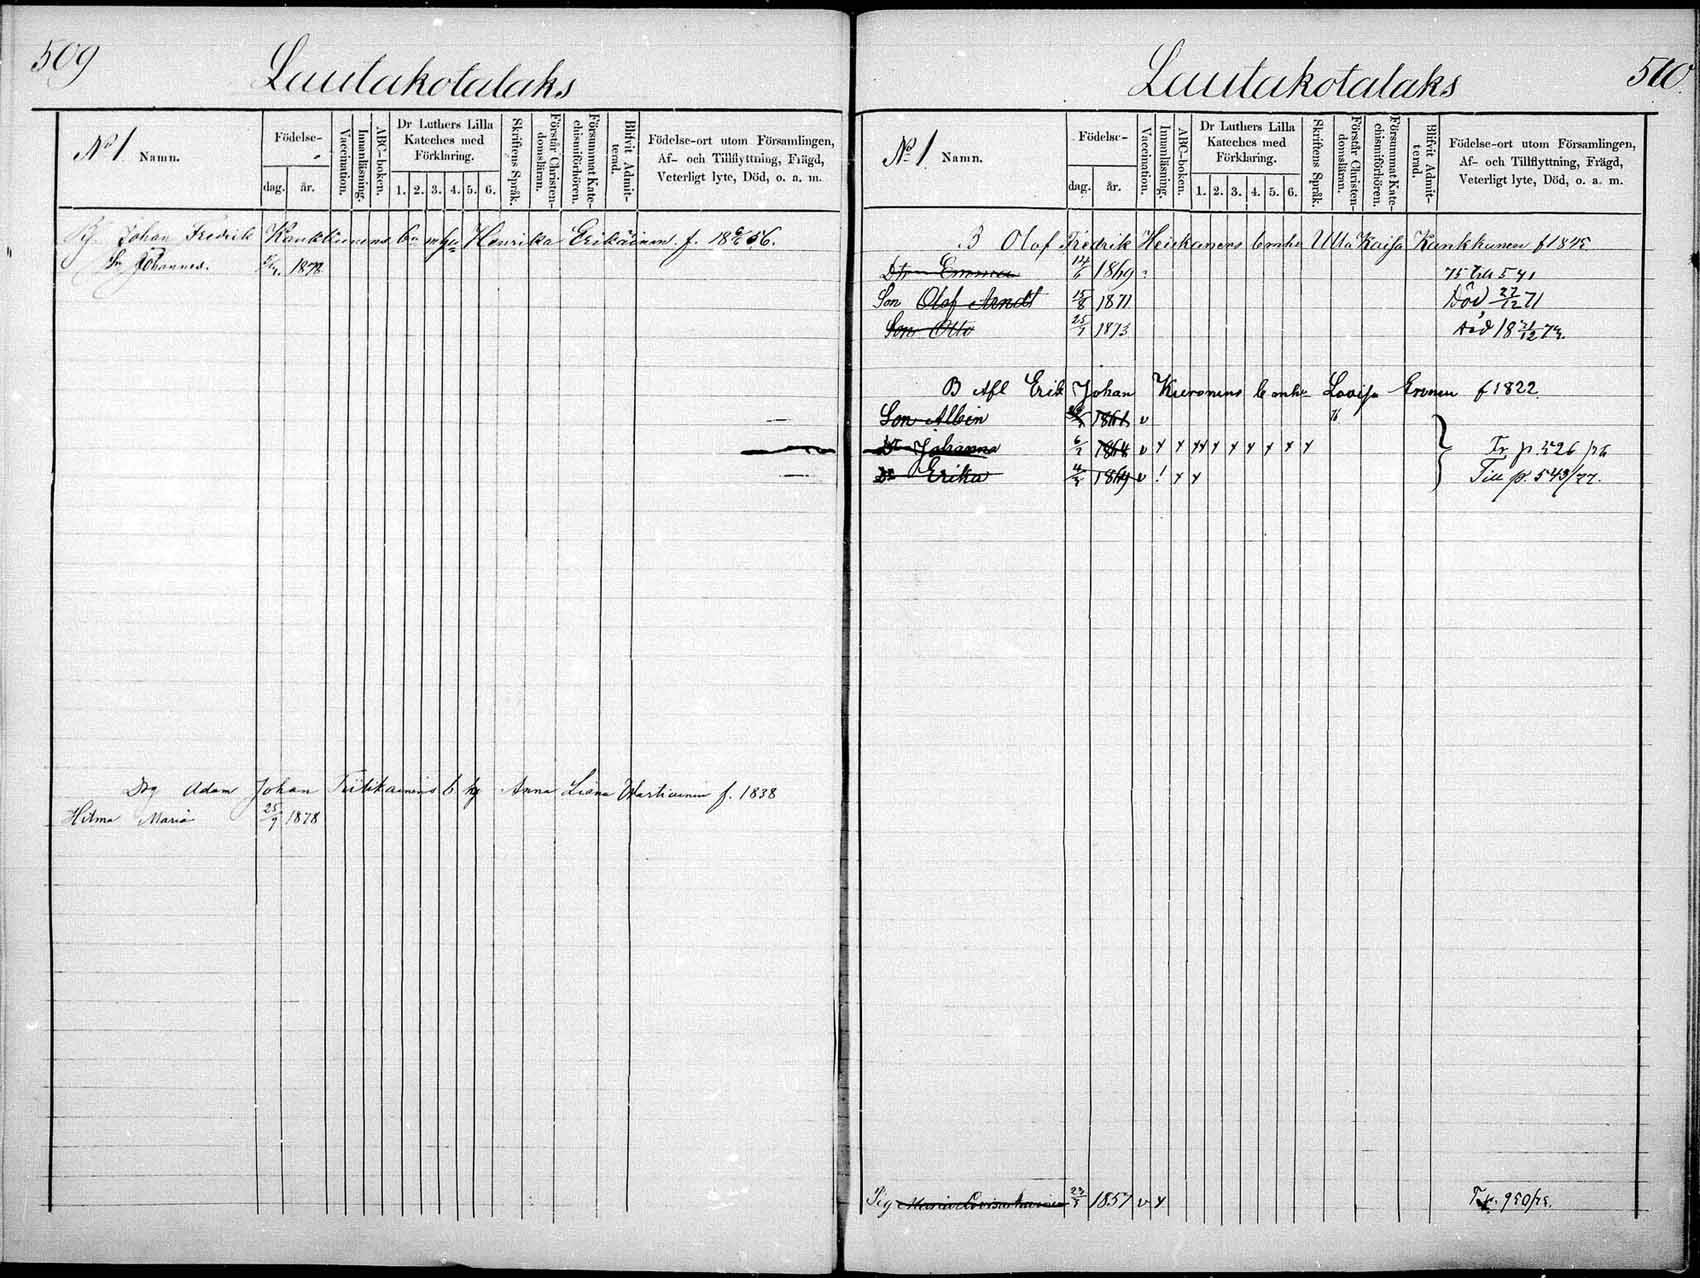 509
Lautakotalaks
No 1 Namn.
Födelse-
dag. år.
Vaccination.
Innanläsning.
ABC-boken.
Dr Luthers Lilla Kateches med Förklaring.
1. 2. 3. 4. 5. 6.
Skriftens Språk.
Förstår Christendomsläran.
Försummat Katechismiförhören.
Blifvit Admitterad.
Födelse-ort utom Församlingen, Af- och Tillflyttning, Frägd, Veterligt lyte, Död, o. a. m.
Johan Fredrik Kankkunens Henrika Erikäinen f. 18 56.
Sn Johannes. 1878
Drg Adam Johan Tiitikainens b hu Anna Liena Wartiainen f. 1838
Hilma Maria 25/9 1878
510
Lautakotalaks
No 1 Namn.
Födelse-
dag. år.
Vaccination.
Innanläsning.
ABC-boken.
Dr Luthers Lilla Kateches med Förklaring.
1. 2. 3. 4. 5. 6.
Skriftens Språk.
Förstår Christendomsläran.
Försummat Katechismiförhören.
Blifvit Admitterad.
Födelse-ort utom Församlingen, Af- och Tillflyttning, Frägd, Veterligt lyte, Död, o. a. m.
B Olof Fredrik Heickinens b m hu Ulla Kaisa Kankkunen f 1845
Dtr Emma 1869 75 till 541
Son Olof Arndt 15/8 1871 Död 27/12 71
Son Otto 25/7 1873 Död 18 21/12 73.
B Afl Erik Johan Kieronens b m hu Lovisa Eronen f 1822.
Son Albin v
Dr Johanna 6/2 1864 v Tr p. 526 /76
Dr Erika 4/3 1869 v Till p. 543/77.
Pig Maria Lovisa 23/3 1857 v Tr. 950/75.